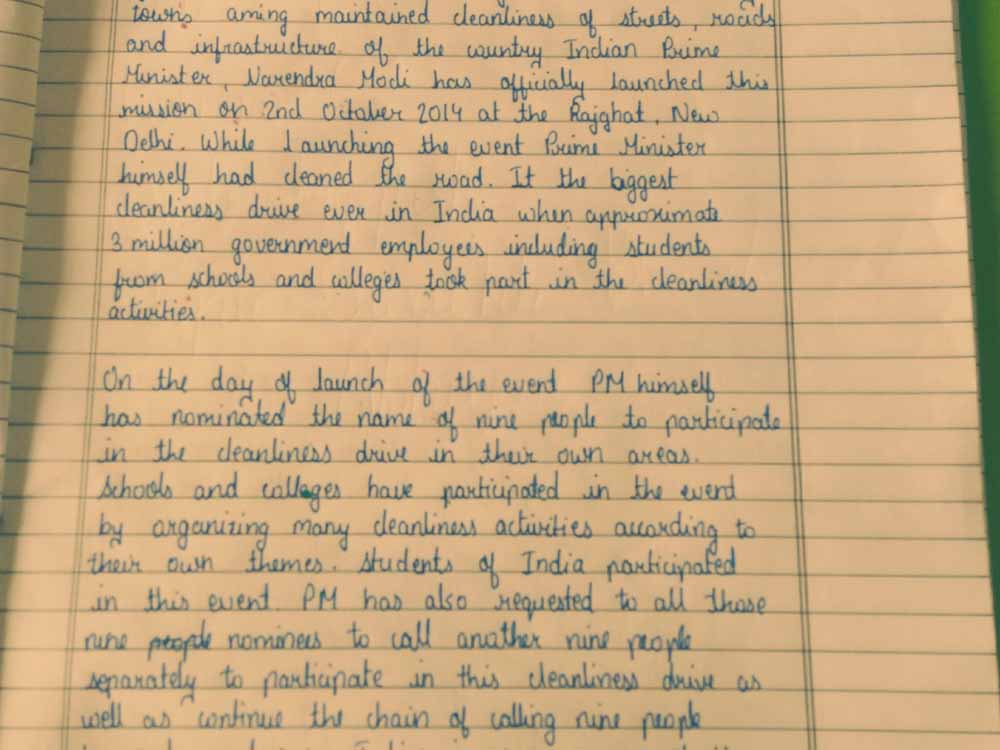 towns aming maintained cleanliness of streets, roads
and infrastructure of the country Indian Prime
Minister, Narendra Modi has officially launched this
mission on 2nd October 2014 at the Rajghat, New
Delhi. While launching the event Prime Minister
himself had cleaned the road. It the biggest
cleanliness drive ever in India when approximate
3 million government employees including students
from schools and colleges took part in the cleanliness
activities.
On the day of launch of the event PM himself
has nominated the name of nine people to participate
in the cleanliness drive in their own areas.
Schools and colleges have participated in the event
by organizing many cleanliness activities according to
their own themes. Students of India participated
in this event. PM has also requested to all those
nine people nominees to call another nine people
separately to participate in this cleanliness drive as
well as continue the chain of calling nine people